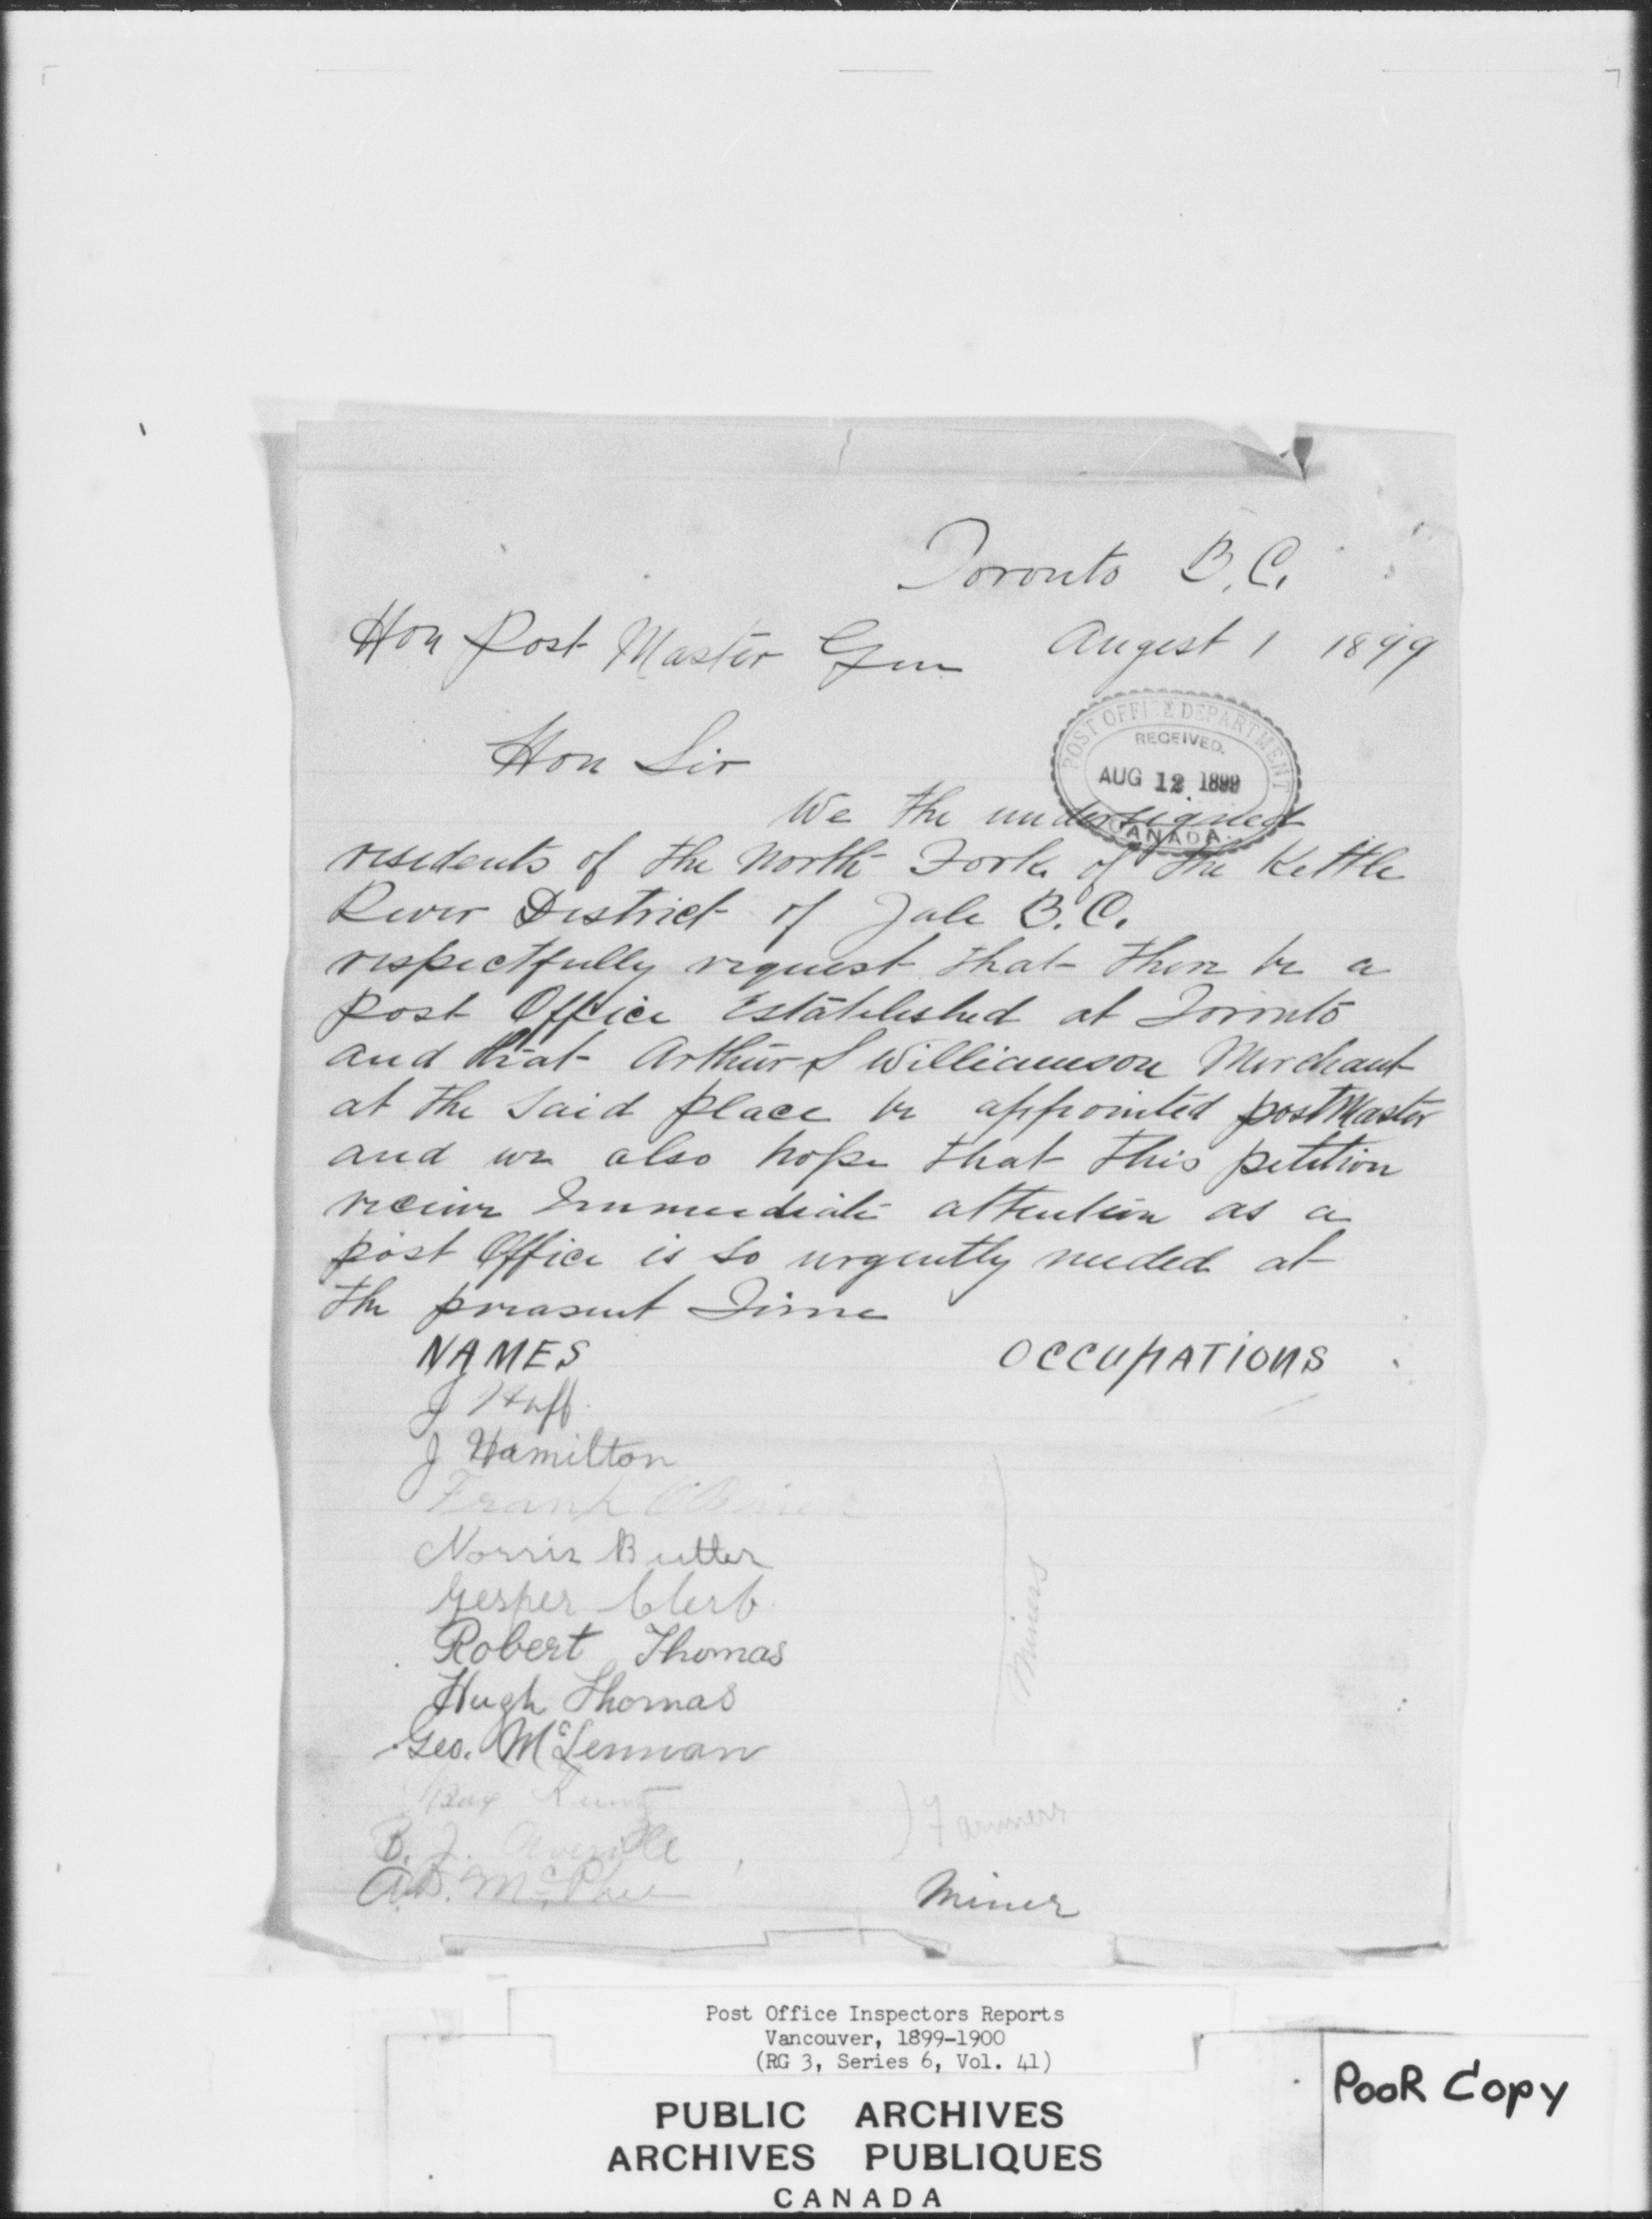 Toronto B.C.
Hon Post Master Gen August 1 1899
POST OFFICE DEPARTMENT
RECEIVED.
AUG 12 1899
CANADA.
Hon Sir
We the undersigned
residents of the North Fork of the Kettle
River District of Yale B.C.
respectfully request that there be a
post Office Established at Toronto
and that Arthur S Williamson Merchant
at the said place be appointed postMaster
and we also hope that this petition
recieve Immediate attention as a
post Office is so urgently needed at
the preasent Time
NAMES OCCUPATIONS
J Huff
J Hamilton
Frank O'Brien
Norris Butter
Gesper Clerf
Robert Thomas
Hugh Thomas
Geo. McLennan
Miners
Farmers
B. J. Averille
A.D. McPhee Miner
Post Office Inspectors Reports
Vancouver, 1899-1900
(RG 3, Series 6, Vol. 41)
PUBLIC ARCHIVES
ARCHIVES PUBLIQUES
CANADA
POOR COPY